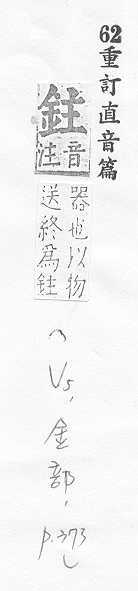 62重訂直音篇
鉒
音注
器也以物
送終為鉒
へV5,金部,
p.373